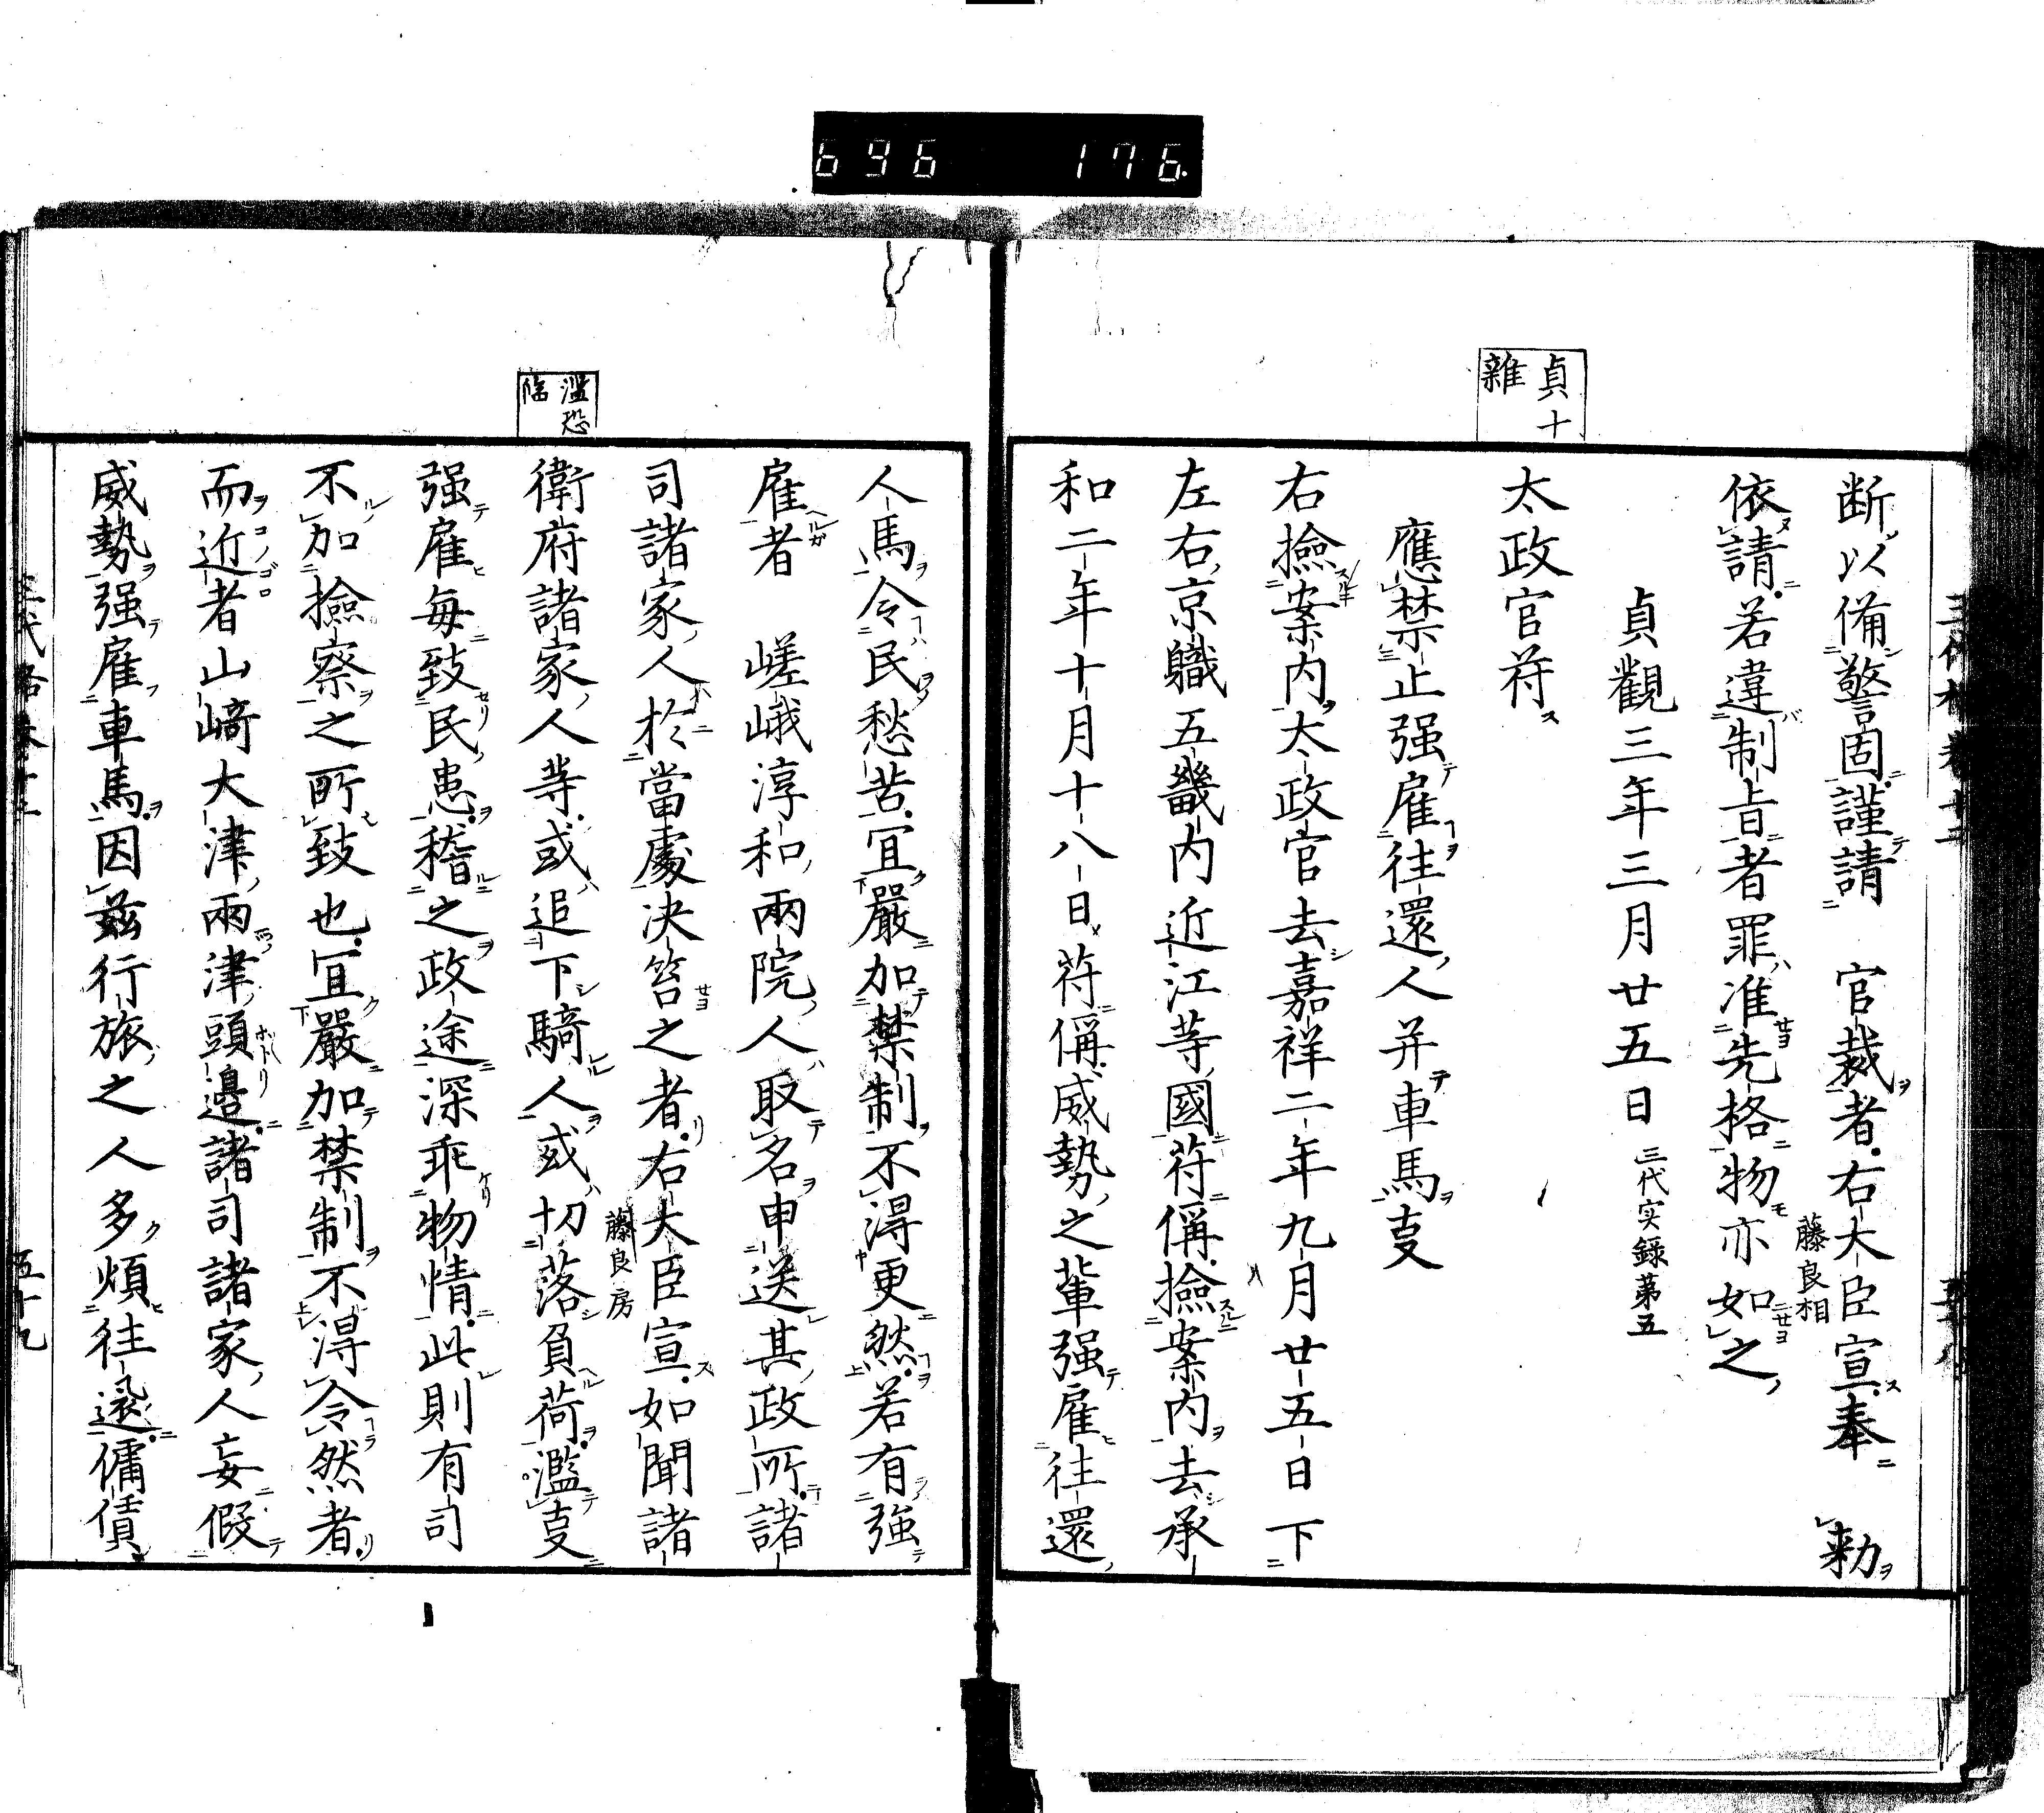 696 176
貞十
雜
断以備警固謹請　官裁者右大臣宣奉　勅
藤良相
依請若違制旨者罪准先格物亦如之
貞觀三年三月廿五日 三代実録第五
太政官符
應禁止强雇往還人并車馬叓
右撿案内太政官去嘉祥二年九月廿五日下
左右京軄五畿内近江等國符偁撿案内去承
和二年十月十八日符偁威勢之輩强雇往還
濫恐
臨
人馬令民愁苦冝嚴加禁制不淂更然若有強
雇者　嵯峨淳和兩院人取名申送其政所諸
司諸家人於當處决笞之者右大臣宣如聞諸
藤良房
衛府諸家人等或追下騎人或切落負荷濫叓
强雇每致民患稽之政途深乖物情此則有司
不加撿察之所致也冝嚴加禁制不淂令然者
而近者山﨑大津兩津頭邉諸司諸家人妄假
威勢强雇車馬因兹行旅之人多煩往還傭賃